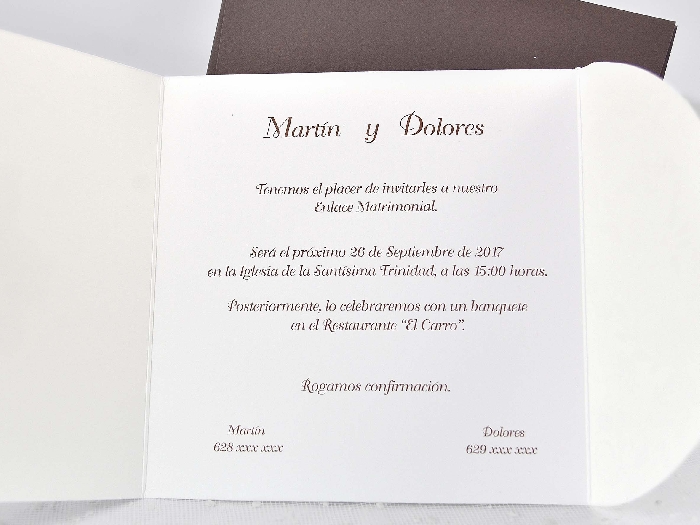 Martín y Dolores
Tenemos el placer de invitarles a nuestro
Enlace Matrimonial.
Será el próximo 26 de Septiembre de 2017
en la Iglesia de la Santísima Trinidad, a las 15:00 horas.
Posteriormente, lo celebraremos con un banquete
en el Restaurante “El Carro”.
Rogamos confirmación.
Martín Dolores
628 xxx xxx 629 xxx xxx